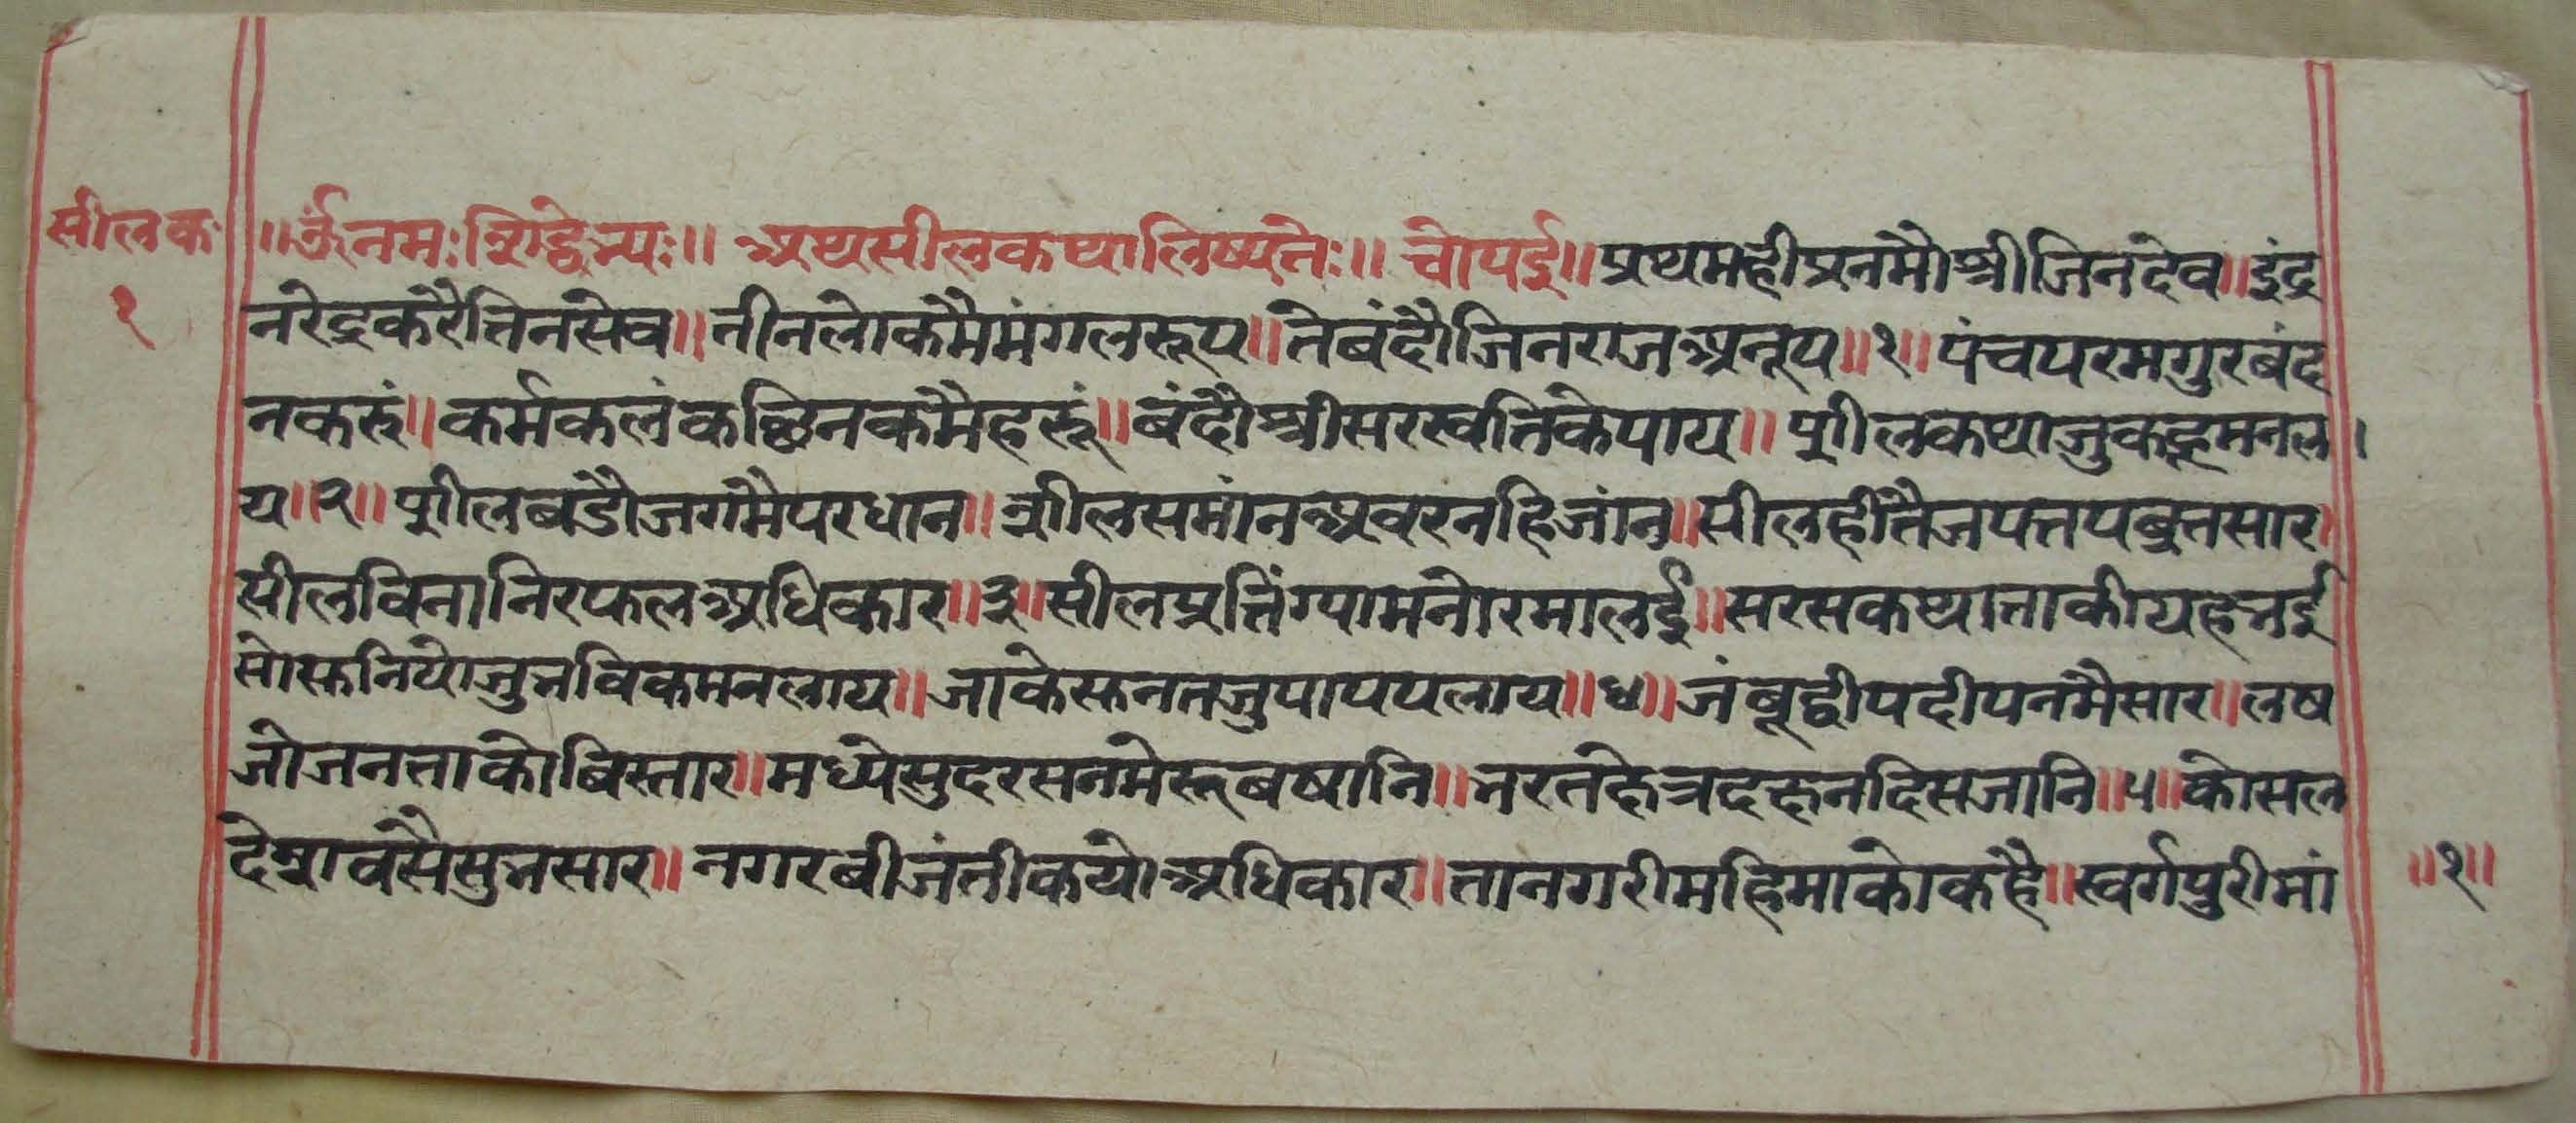 सीलक
१
॥ॐनमःशिद्धेभ्यः॥ अथसीलकथालिष्यतेः॥ चोपई॥प्रथमहीप्रनमौश्रीजिनदेव॥इंद्र
नरेंद्रकरैत्तिनसेव॥तीनलोकमैमंगलरूप॥तेबंदौजिनराजअनूप॥१॥पंचपरमगुरबंद
नकरुं॥कर्मकलंकछिनकमैहरूं॥बंदौश्रीसरस्वतिकेपाय॥शीलकथाजुकहूमनल।
य॥२॥शीलबडौजगमैपरधान॥शीलसमांनअवरनहिजांन॥सीलहीतैजपत्तपब्रतसार॥
सीलविनानिरफलअधिकार॥३॥सीलप्रत्तिंग्यामनोरमालई॥सरसकथात्ताकीयहभई
सोसुनियोजुभविकमनलाय॥जाकेसुनतजुपापपलाय॥४॥जंबूद्वीपदीपनमैसार॥लष
जोजनत्ताकोबिस्तार॥मध्येसुदरसनमेरूबषानि॥भरतछेत्रदछनदिसजानि॥५॥कोसल
देशवसैसुभसार॥नगरबीजंतीकयोअधिकार॥तानगरीमहिमाकोकहै॥स्वर्गपुरीमां
॥१॥